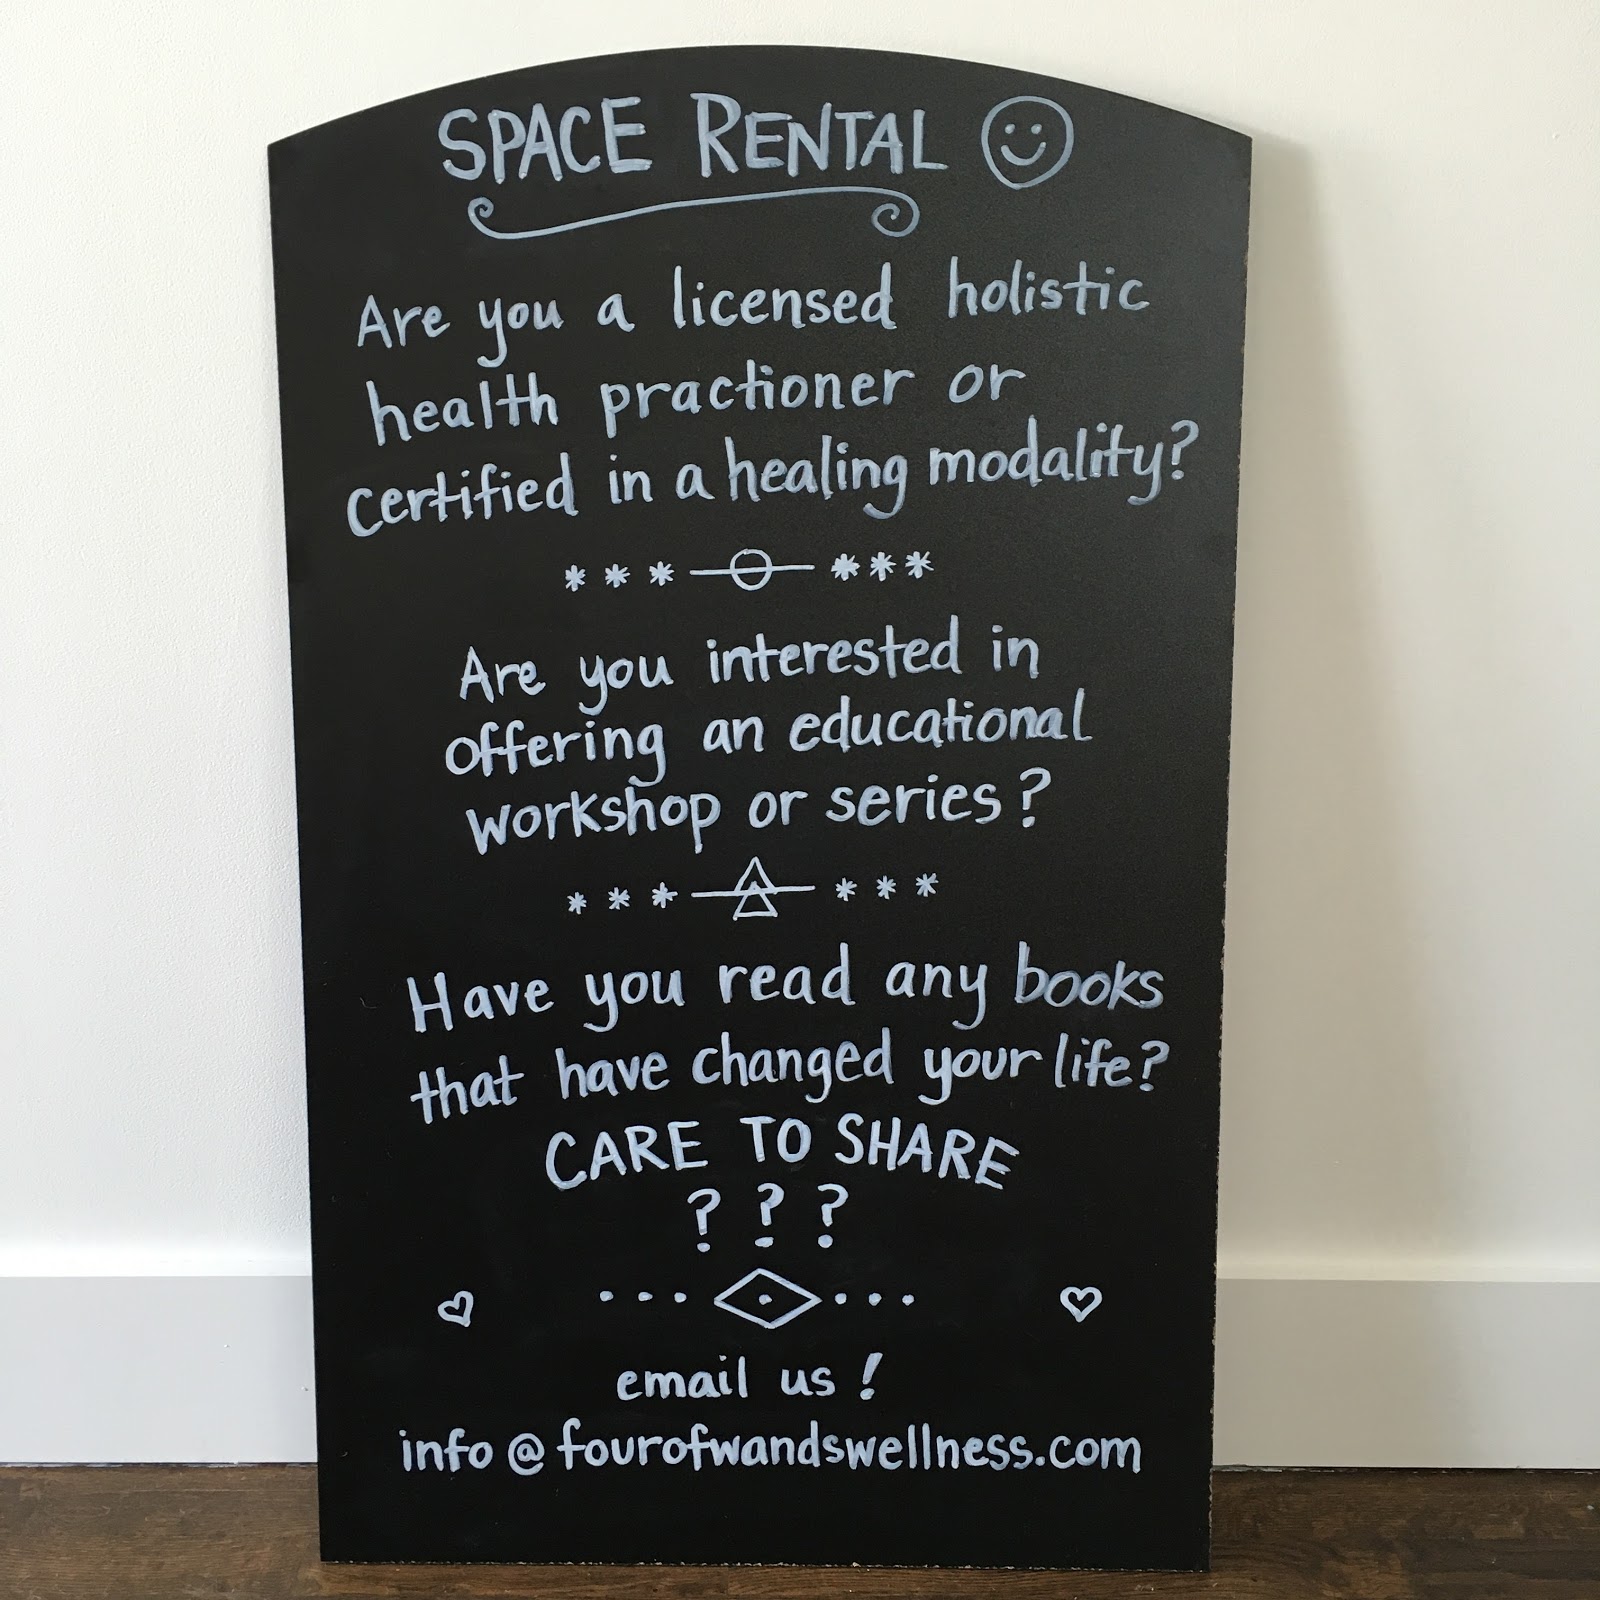 SPACE RENTAL
Are you a licensed holistic
health practioner or
certified in a healing modality?
Are you interested in
offering an educational
workshop or series?
Have you read any books
that have changed your life?
CARE TO SHARE
? ? ?
email us!
info@fourofwandswellness.com